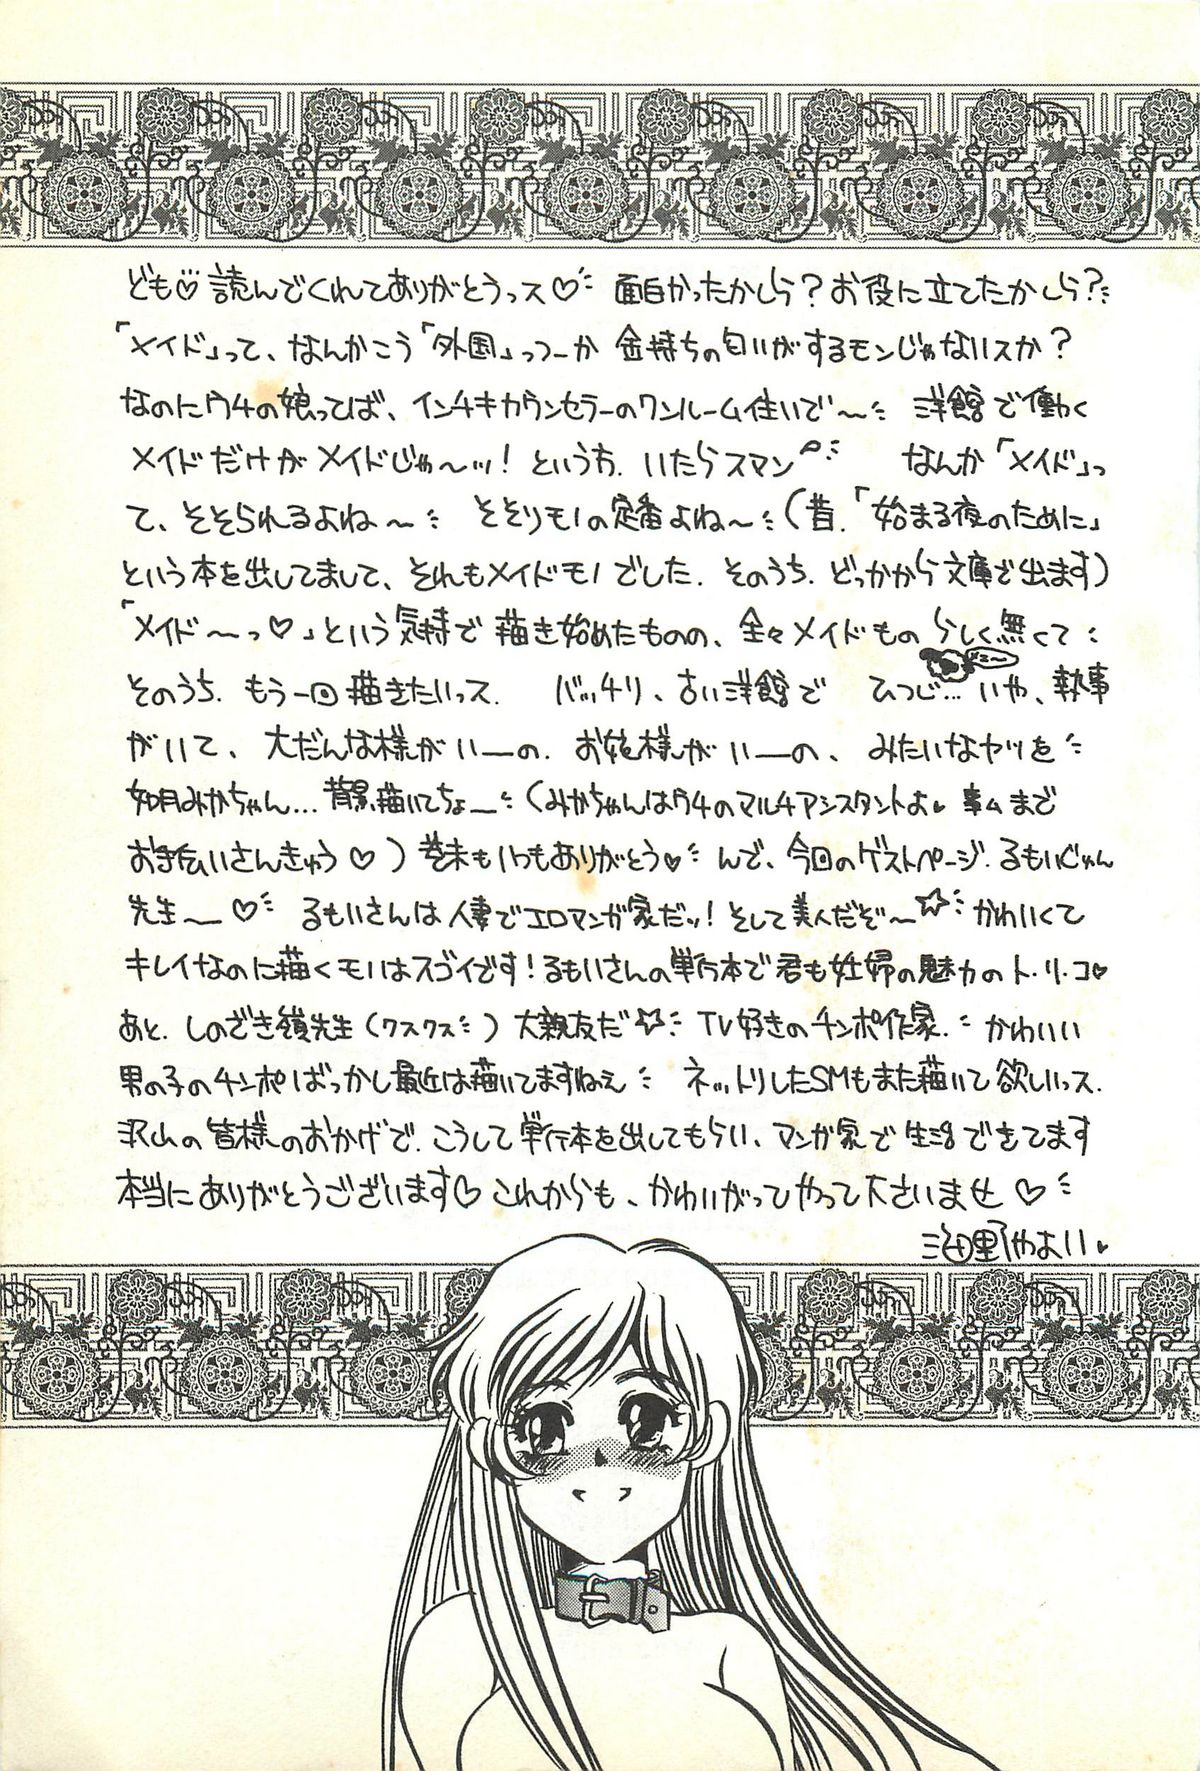 ども♡読んでくれてありがとうっス♡ 面白かったかしら？お役に立てたかしら？
「メイド」って、なんかこう「外国」っつーか 金持ちの匂いがするモンじゃないスか？
なのにウチの娘ってば、インチキカウンセラーのワンルーム住いで〜 洋館で働く
メイドだけがメイドじゃ〜ッ！というち、いたらスマン なんか「メイド」っ
て、そそられるよね〜 そそりモノの定番よね〜（昔、「始まる夜のために」
という本を出してまして、それもメイドモノでした．そのうち．どっかから文庫で出ます）
「メイド〜っ♡」という気持で描き始めたものの、全々メイドものらしく無くて
そのうち．もう一回描きたいっス． バッチリ、古い洋館で ひつじ…いや、執事
メェ〜
がいて、大だんな様がいーの．お嬢様がいーの、みたいなヤツを
如月みかちゃん…背景描いてちょー（みかちゃんはウチのマルチアシスタントよ♥ 事ムまで
お手伝いさんきゅう♡）巻末もいつもありがとう♥ んで、今回のゲストページ．るもいじゅん
先生〜♡ るもいさんは人妻でエロマンガ家だッ！そして美人だぞ〜☆ かわいくて
キレイなのに描くモノはスゴイです！るもいさんの単行本で君も妊婦の魅力のト・リ・コ♥
あと．しのざき嶺先生（クスクス）大親友だ☆ TV好きのチンポ作家． かわいい
男の子のチンポばっかし最近は描いてますねぇ ネットリしたSMもまた描いて欲しいっス．
沢山の皆様のおかげで．こうして単行本を出してもらい、マンガ家で生活できてます
本当にありがとうございます♡これからも、かわいがってやって下さいませ♡
海野やよい♥